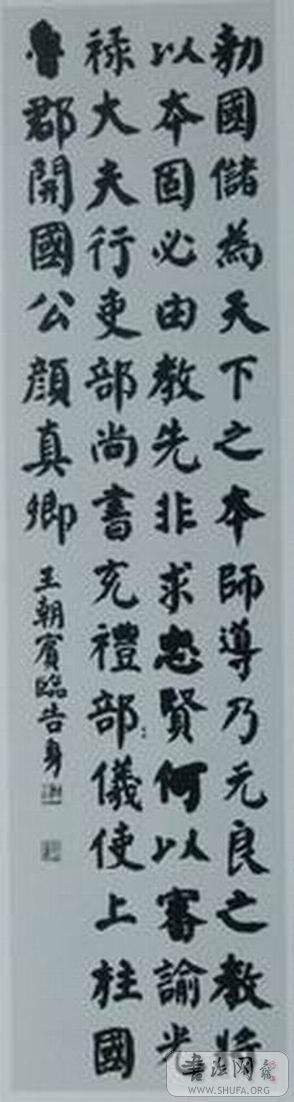 勅國儲為天下之本師導乃元良之教將
以本固必由教先非求忠賢何以審諭光
禄大夫行吏部尚書充禮部儀使上柱國
魯郡開國公顔真卿
王朝賓臨告身
书法网
WWW.SHUFA.ORG